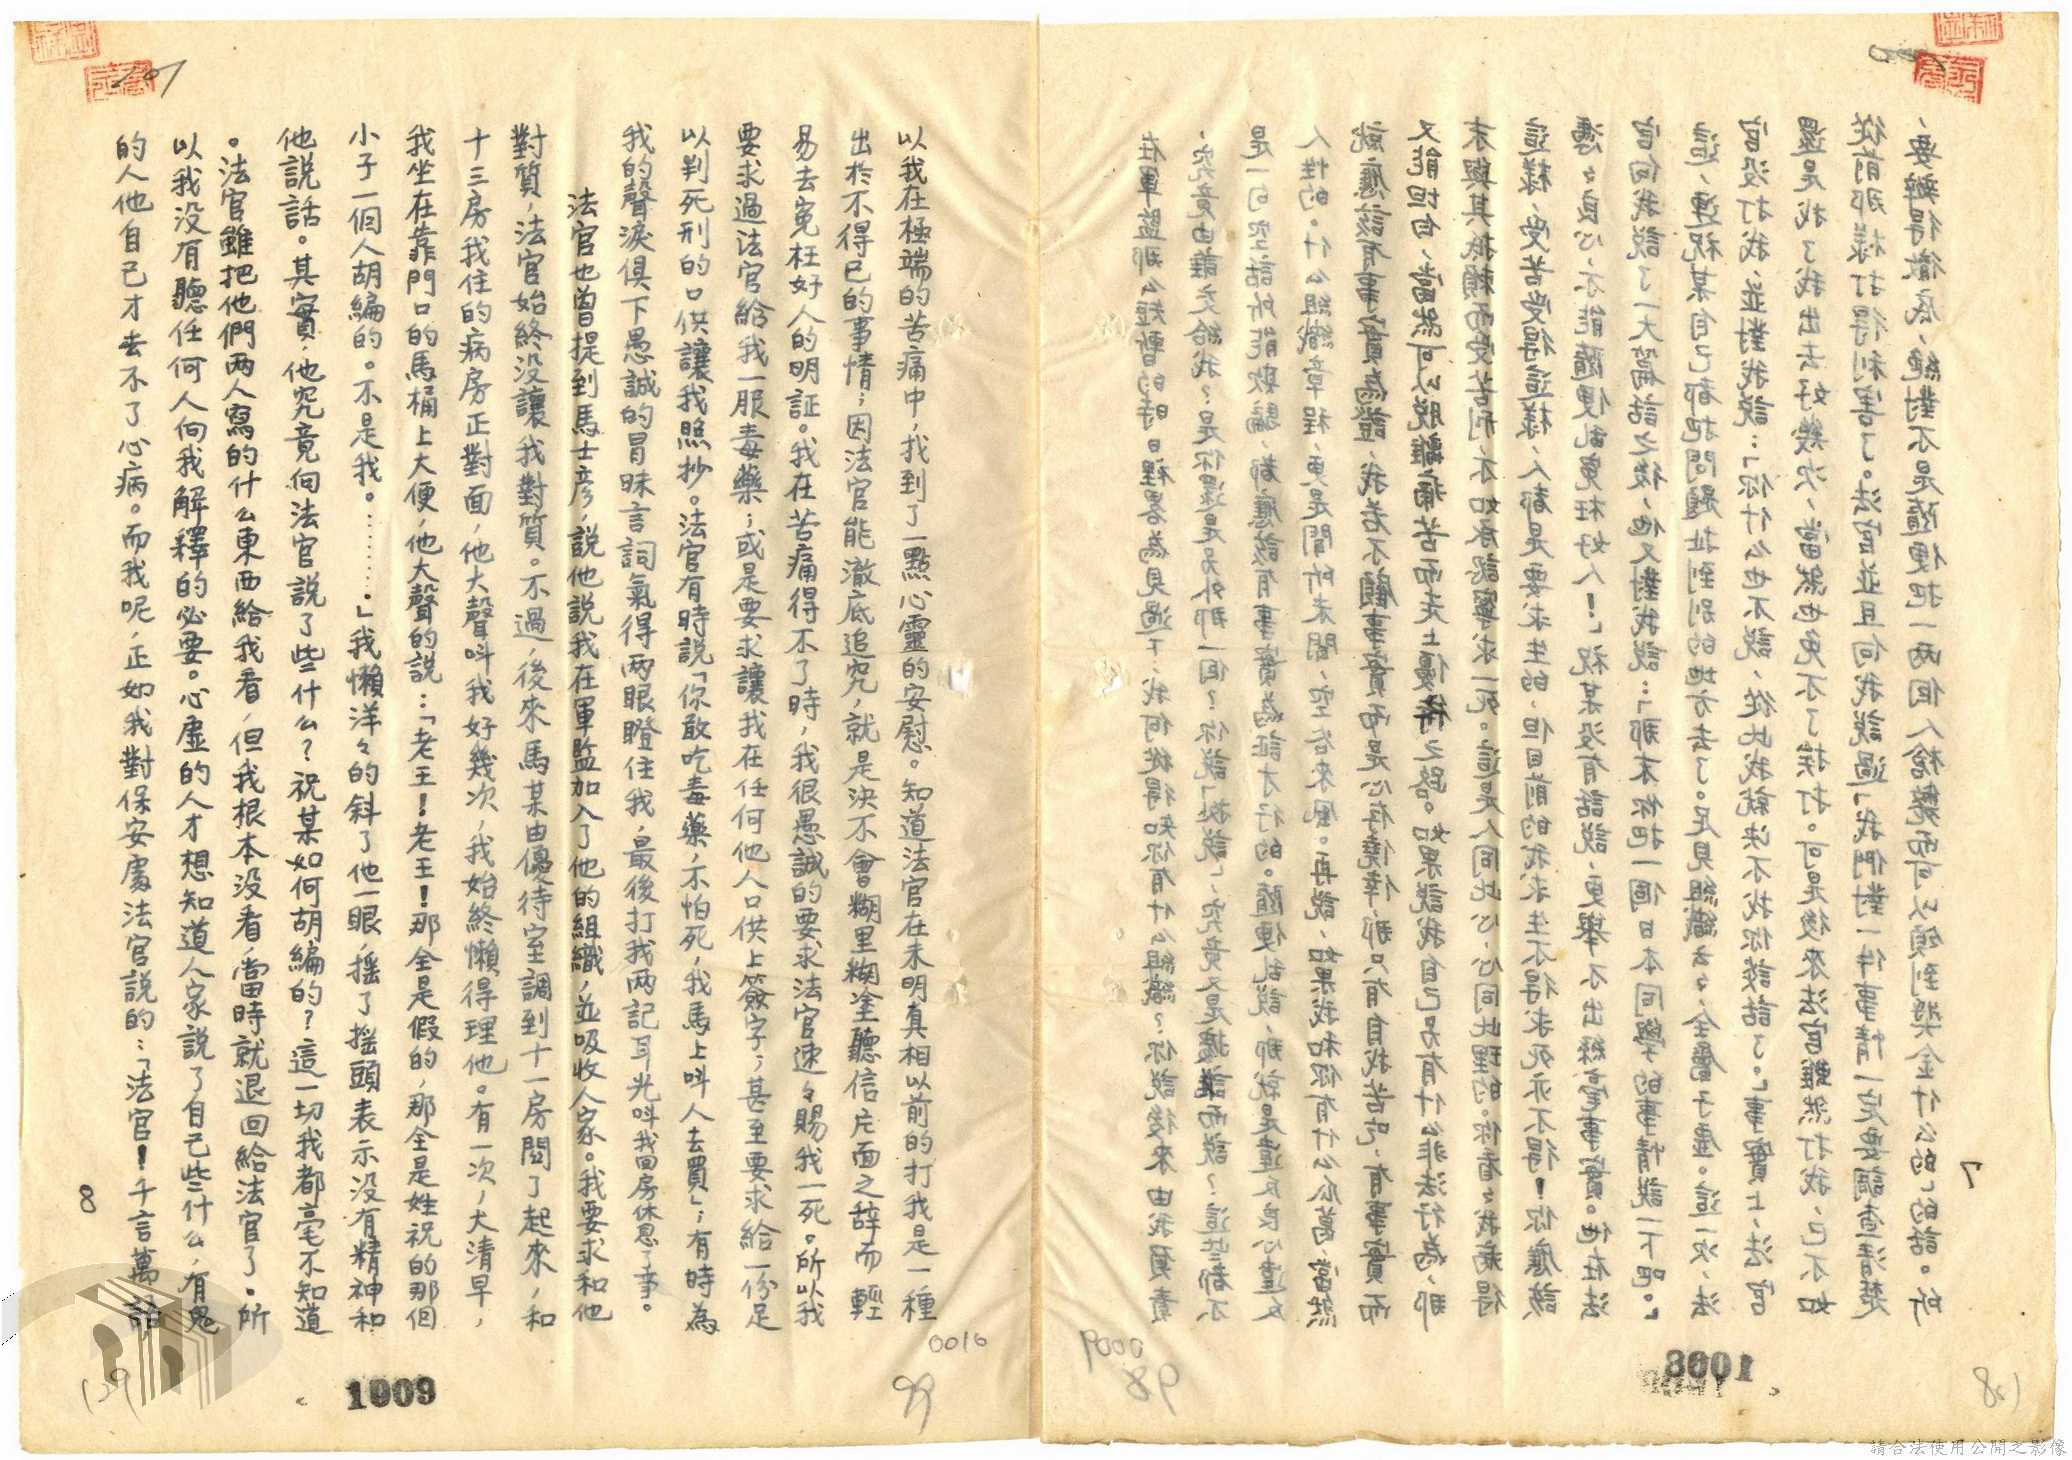 在軍監那么短暫的時日裡畧為見過了,我何從得知你有什么組織?你說後來由我負責
,究竟由誰交給我?是你還是另外那一個?你說「据說」,究竟又是據誰而說?這些都不
是一句空話所能欺騙,都應該有事實為証才行的。隨便乱說,那就是違反良心違反
人性的。什么組織章程,更是聞所未聞,空谷來風。再說,如果我和你有什么瓜葛,當然
就應該有事實為證,我若不顧事實而是心存僥倖,那只有自找苦吃,有事實而
又能坦白,當然可以脫離痛苦而走上優待之路。如果說我自己另有什么非法行為,那
末與其抵賴而受苦刑,不如承認寧求一死。這是人同此心,心同此理的。你看々我病得
這樣,受苦受得這樣,人都是要求生的,但目前的我求生不得求死亦不得!你應該
憑々良心,不能隨便乱冤枉好人!」祝某没有話說,更舉不出絲毫事實。他在法
官向我說了一大篇話之後,他又對我說:「那末你把一個日本同學的事情說一下吧。」
這,連祝某自己都把問題扯到別的地方去了。足見組織云々,全屬子虛。這一次,法
官没打我,並對我說:「你什么也不說,從此我就決不找你談話了。」事實上,法官
還是找了我出去好幾次,當然也免不了挨打。可是後來法官雖然打我,已不如
從前那樣打得利害了。法官並且向我說過「我們對一件事情一定要調查清楚
、要辦得徹底,絕對不是隨便把一兩個人槍斃而可以領到獎金什么的」的話。所
7
0009
98
以我在極端的苦痛中,找到了一點心靈的安慰。知道法官在未明真相以前的打我是一種
出於不得已的事情;因法官能澈底追究,就是決不會糊里糊塗聽信片面之辞而輕
易去冤枉好人的明証。我在苦痛得不了時,我很愚誠的要求法官速々賜我一死。所以我
要求過法官給我一服毒藥;或是要求讓我在任何他人口供上簽字;甚至要求給一份足
以判死刑的口供讓我照抄。法官有時說「你敢吃毒藥,不怕死,我馬上叫人去買」;有時為
我的聲淚俱下愚誠的冒昧言詞氣得兩眼瞪住我,最後打我兩記耳光叫我回房休息了事。
法官也曾提到馬士彥,說他說我在軍監加入了他的組織,並吸收人家。我要求和他
對質,法官始終没讓我對質。不過,後來馬某由優待室調到十一房關了起來,和
十三房我住的病房正對面,他大聲叫我好幾次,我始終懶得理他。有一次,大清早,
我坐在靠門口的馬桶上大便,他大聲的說:「老王!老王!那全是假的,那全是姓祝的那個
小子一個人胡編的。不是我。………。」我懶洋々的斜了他一眼,摇了摇頭表示没有精神和
他説話。其實,他究竟向法官説了些什么?祝某如何胡編的?這一切我都毫不知道
。法官雖把他們兩人寫的什么東西給我看,但我根本没看,當時就退回給法官了。所
以我没有聽任何人向我解釋的必要。心虛的人才想知道人家說了自己些什么,有鬼
的人他自己才去不了心病。而我呢,正如我對保安處法官說的:「法官!千言萬語
8
0010
99
1009
129
請合法使用公開之影像